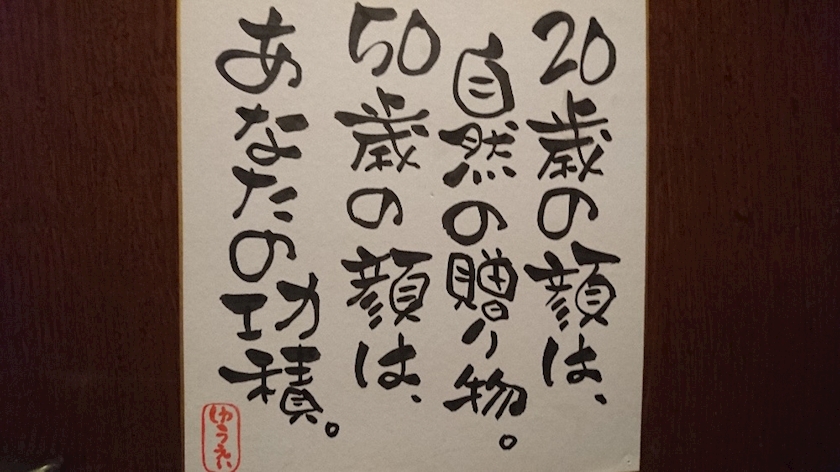 20歳の顔は、
自然の贈り物。
50歳の顔は、
あなたの功積。
ゆうえい